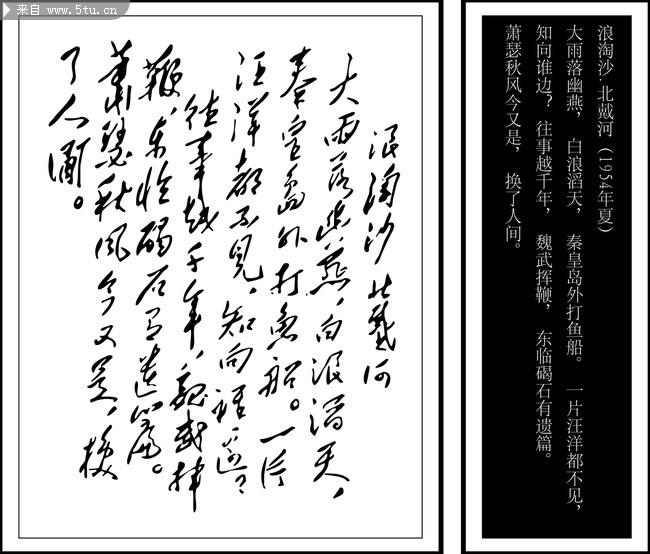 来自 www.5tu.cn
浪淘沙·北戴河（1954年夏）
大雨落幽燕，白浪滔天，秦皇岛外打鱼船。一片汪洋都不见，
知向谁边？往事越千年，魏武挥鞭，东临碣石有遗篇。
萧瑟秋风今又是，换了人间。
浪淘沙 北戴河
大雨落幽燕，白浪滔天，
秦皇岛外打鱼船。一片
汪洋都不见，知向谁边？
往事越千年，魏武挥
鞭，东临碣石有遗篇。
萧瑟秋风今又是，换
了人间。